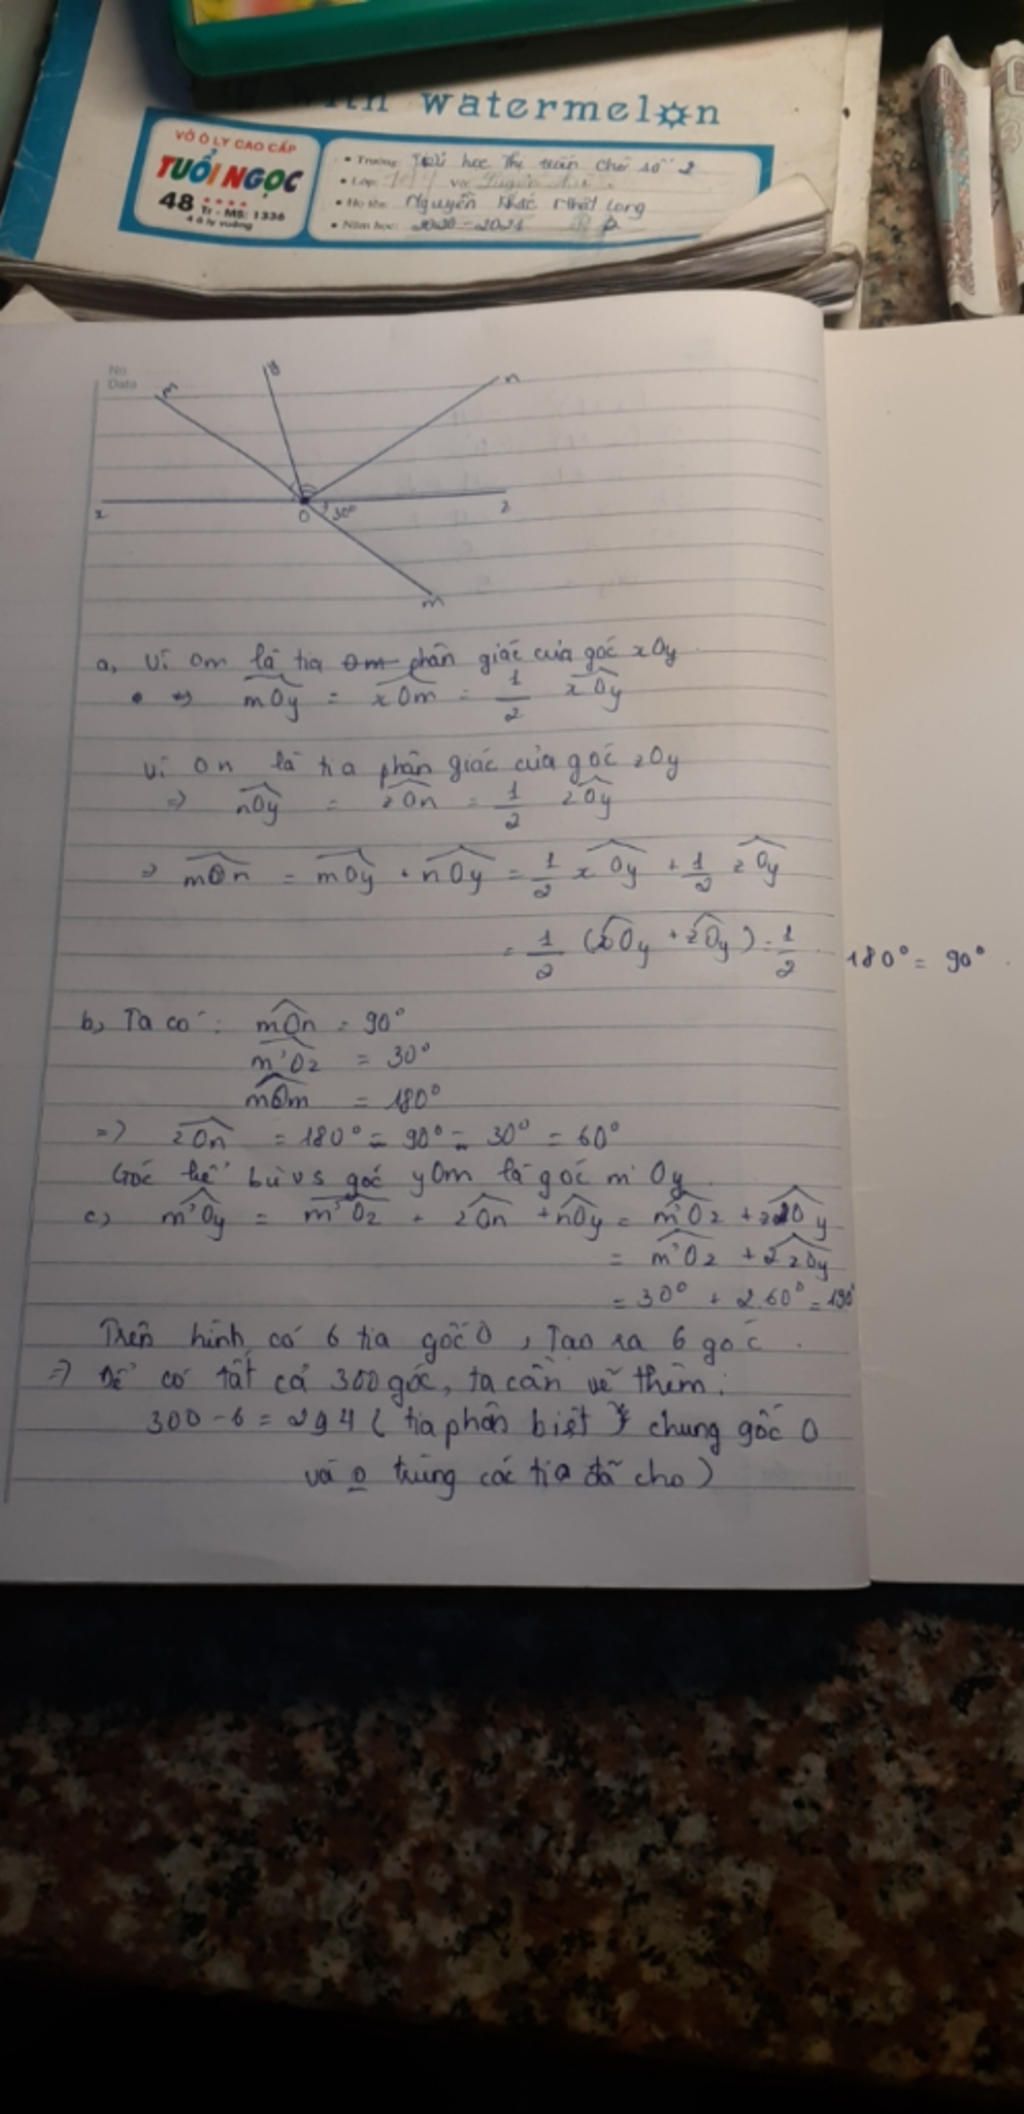 with watermelon
VỞ Ô LY CAO CẤP
TUỔI NGỌC
48 Tr - MS: 1336
4 ô ly vuông
• Trường: Tiểu học Thị trấn Chờ số 2
• Lớp:
• Họ tên: Nguyễn Khắc Nhật Long
• Năm học: 2020-2021
No
Data
m y n
x O 30° z
m
a, Vì Om là tia Om phân giác của góc xOy
=> mOy = xOm = 1/2 xOy
Vì On là tia phân giác của góc zOy
=> nOy = zOn = 1/2 zOy
=> mOn = mOy + nOy = 1/2 xOy + 1/2 zOy
= 1/2 (xOy + zOy) = 1/2 . 180° = 90°.
b, Ta có: mOn = 90°
m'Oz = 30°
mOm = 180°
=> zOn = 180° - 90° - 30° = 60°
Góc kề bù vs góc yOm là góc m'Oy
c, m'Oy = m'Oz + zOn + nOy = m'Oz + zOy
= m'Oz + 2 zOy
= 30° + 2.60° = 150°
Trên hình có 6 tia gốc O, Tạo ra 6 góc.
=> Để có tất cả 300 góc, ta cần vẽ thêm:
300 - 6 = 294 (tia phân biệt chung gốc O
và o trùng các tia đã cho)